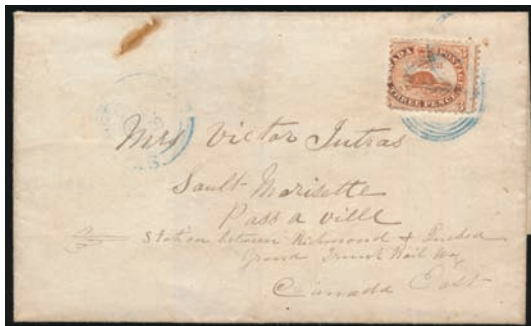 CANADA POSTAGE
THREE PENCE
Mrs Victor Intras
Sault Morisette
Pass a ville
Station between Richmond & Quebec
Grand Trunk Rail Way
Canada East